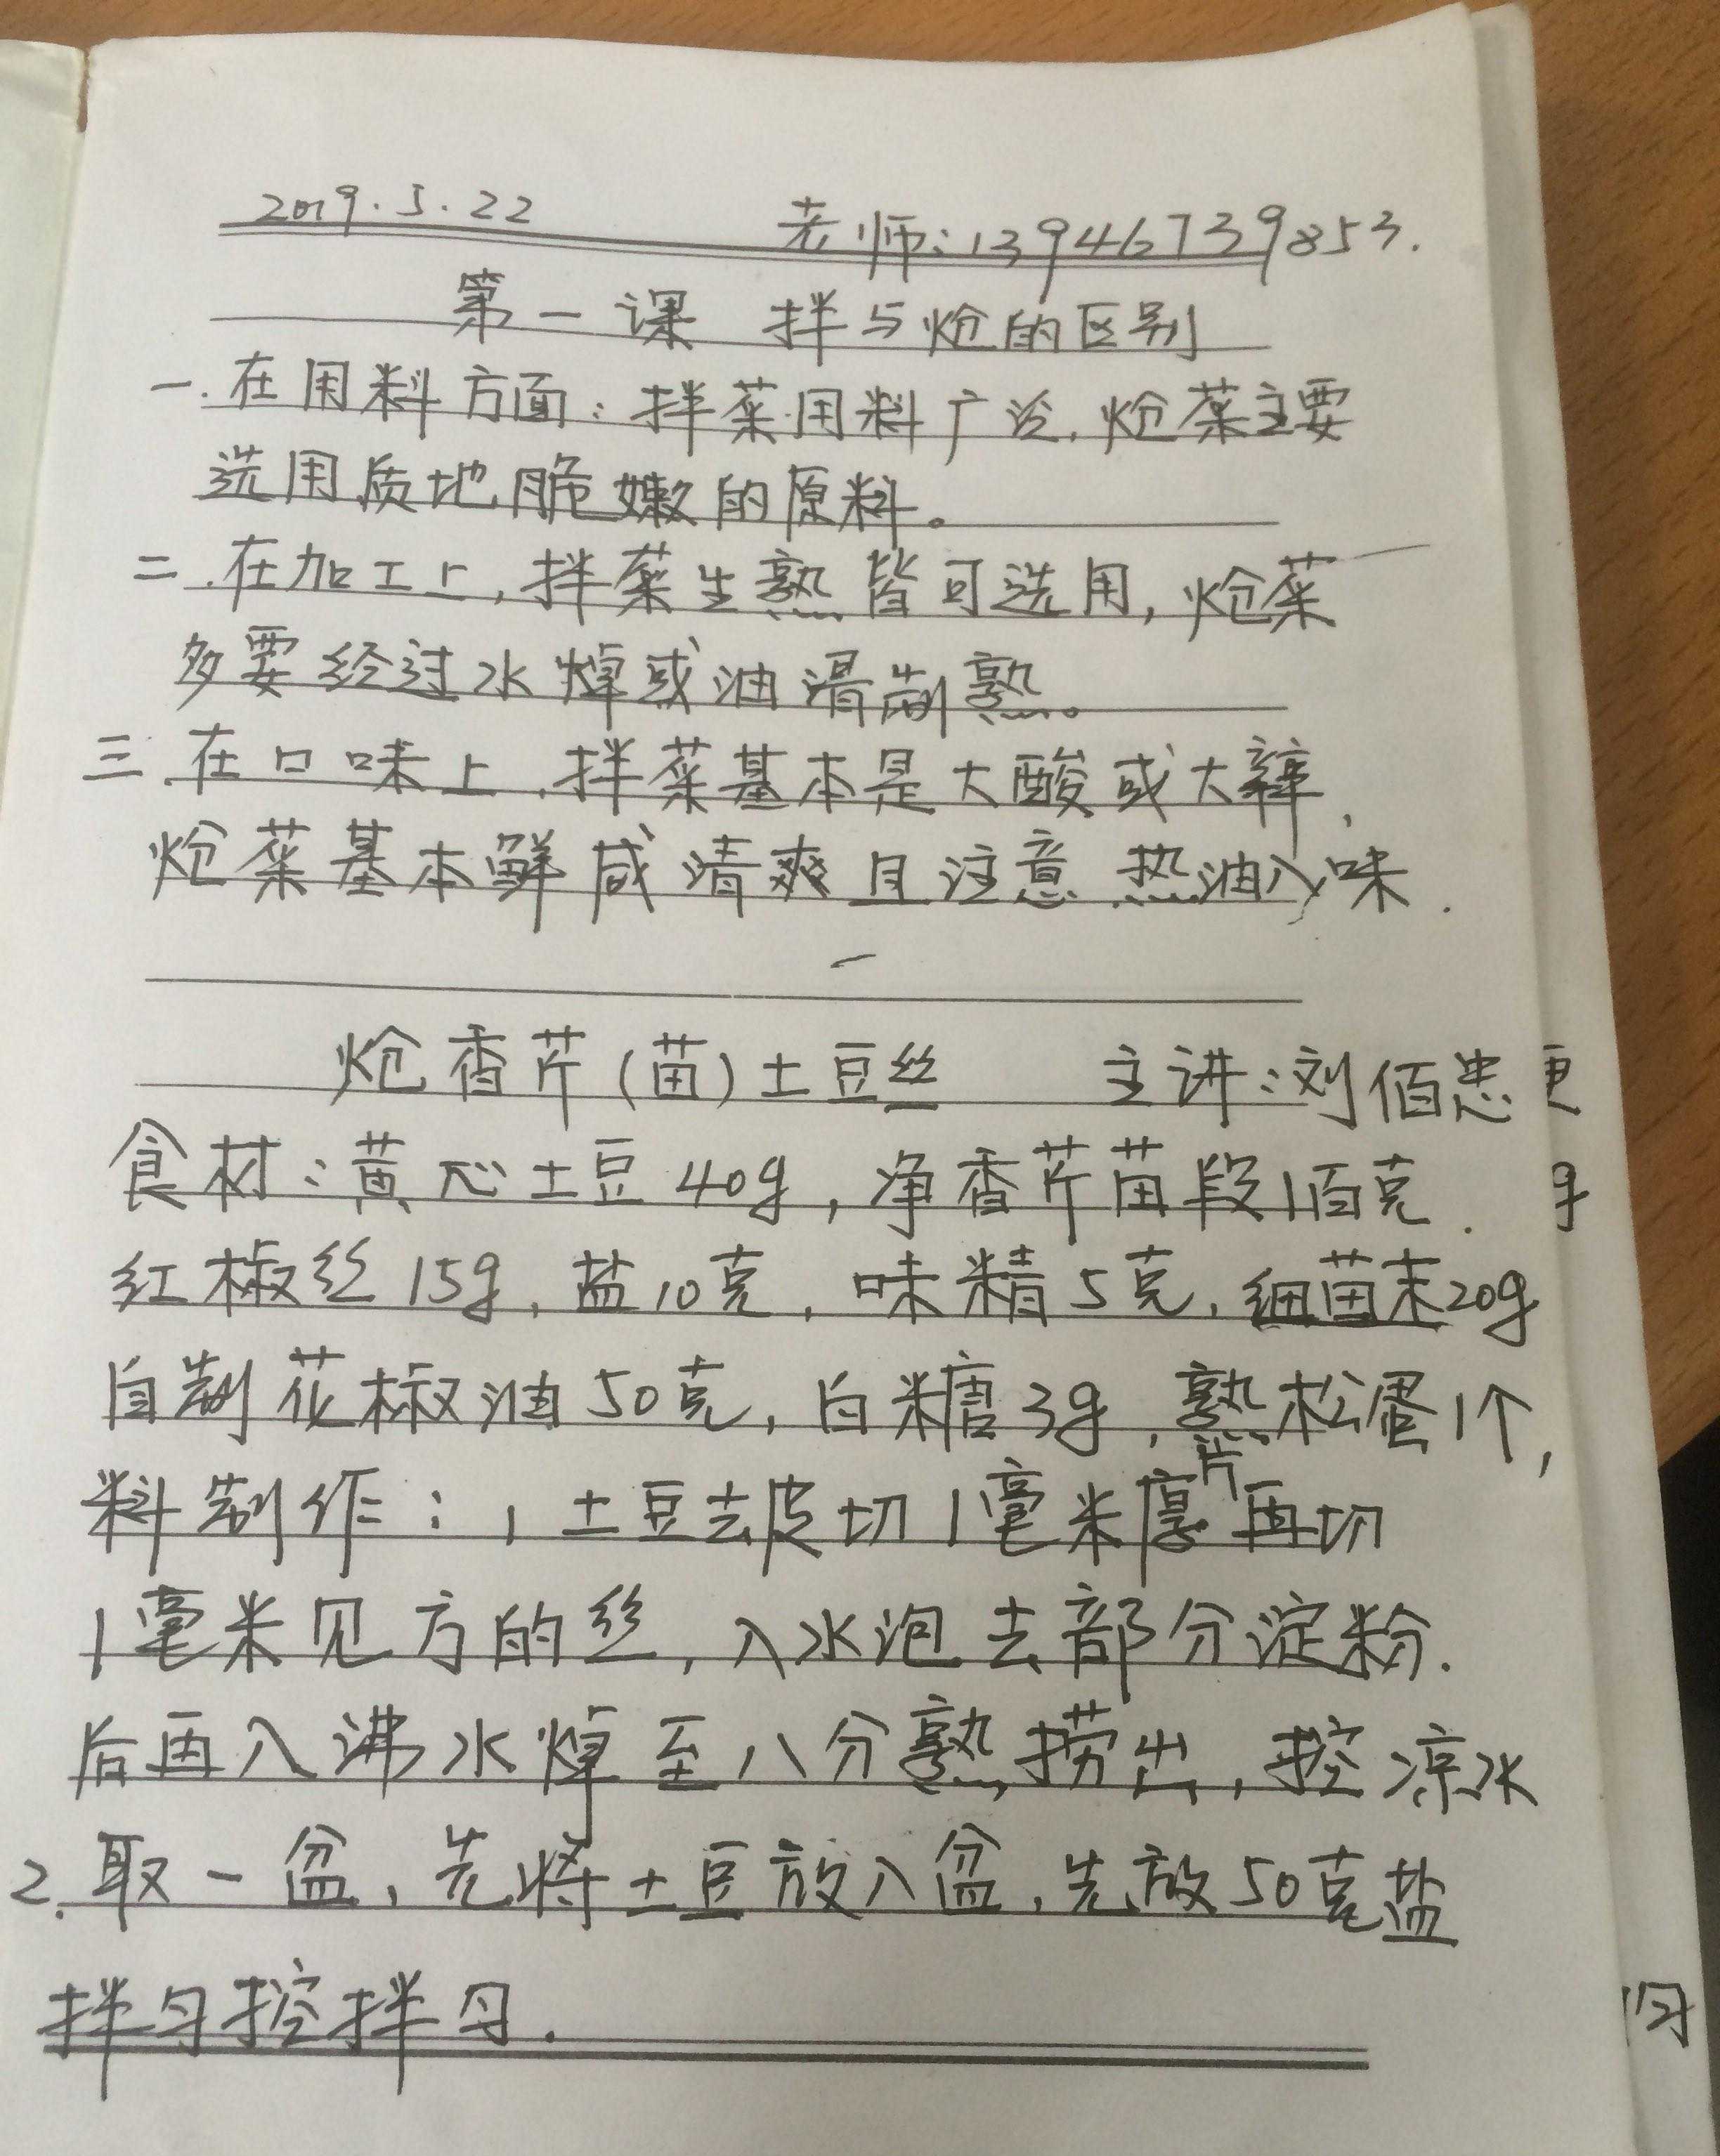 2019.5.22 老师:13946739853.
第一课 拌与炝的区别
一.在用料方面:拌菜用料广泛,炝菜主要
选用质地脆嫩的原料。
二.在加工上,拌菜生熟皆可选用,炝菜
多要经过水焯或油滑制熟。
三.在口味上,拌菜基本是大酸或大辣,
炝菜基本鲜咸清爽且注意热油入味.
炝香芹(苗)土豆丝 主讲:刘佰忠
食材:黄心土豆40g,净香芹苗段1百克.
红椒丝15g,盐10克,味精5克,细苗末20g
自制花椒油50克,白糖3g,熟松蛋1个,
料制作:1土豆去皮切1毫米厚片再切
1毫米见方的丝,入水泡去部分淀粉.
后再入沸水焯至八分熟捞出,控凉水
2.取一盆,先将土豆放入盆,先放50克盐
拌匀控拌匀.